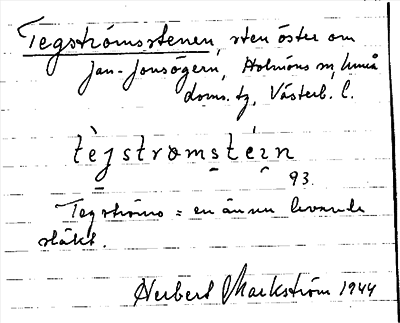 Tegströmsstenen, sten öster om
Jan-Jonsögern, Holmöns sn, Umeå
doms. tg, Västerb. l.
tèjstrømstéɪn
93.
Tegströms = en ännu levande
släkt.
Herbert Markström 1944